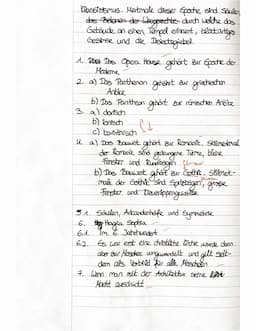 Klassizismus. Merkmale dieser Epoche, sind Säulen,
durch welche das
Gebäude an einen Tempel erinnert, blattartiges
Gesimse und die Dreiecksgiebel.
1. Das Opera House gehört zur Epoche der
Moderne
2. a) Das Parthenon gehört zur griechischen
Antike
b) Das Pantheon gehört zur römischen Antike
3. a) dorisch
b) ionisch
c) korinthisch
4. a) Das Bauwerk gehört zur Romanik. Stilmerkmal
der Romanik sind gedrungene Türme, kleine
Fenster und Rundbögen
b) Das Bauwerk gehört zur Gothik. Stilmerk-
male der Gothik sind Spitzbögen, große
Fenster und Kreuzrippengewölbe
5.1. Säulen, und Symmetrie
6. Hagia Sophia
6.1. Im 6. Jahrhundert
6.2. Es war erst eine christliche Kirche wurde dann
aber zur Moschee umgewandelt und gilt seit-
dem als Vorbild für alle Moscheen
7. Wenn man mit der Architektur seine
Macht ausdrückt